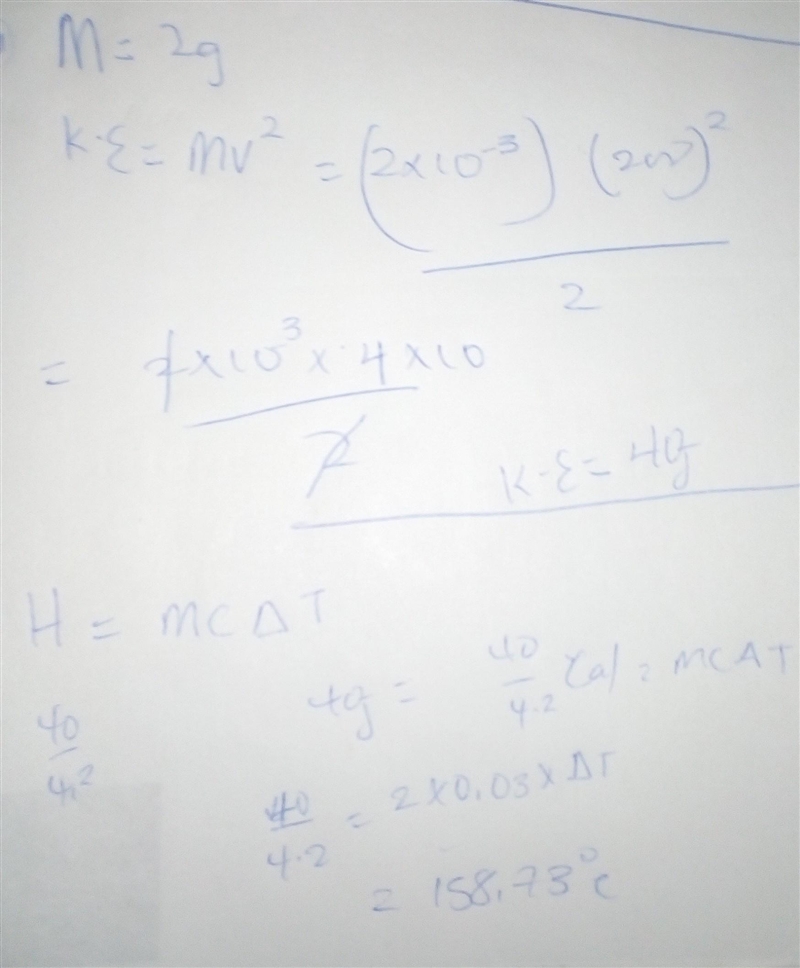 M = 2g
K.E = mv² = (2×10⁻³) (200)²
2
= 2×10³ × 4×10
2
K.E = 40J
H = MCΔT
40J = 40/4.2 Cal = MCΔT
40/4.2
40/4.2 = 2×0.03×ΔT
= 158.73°C